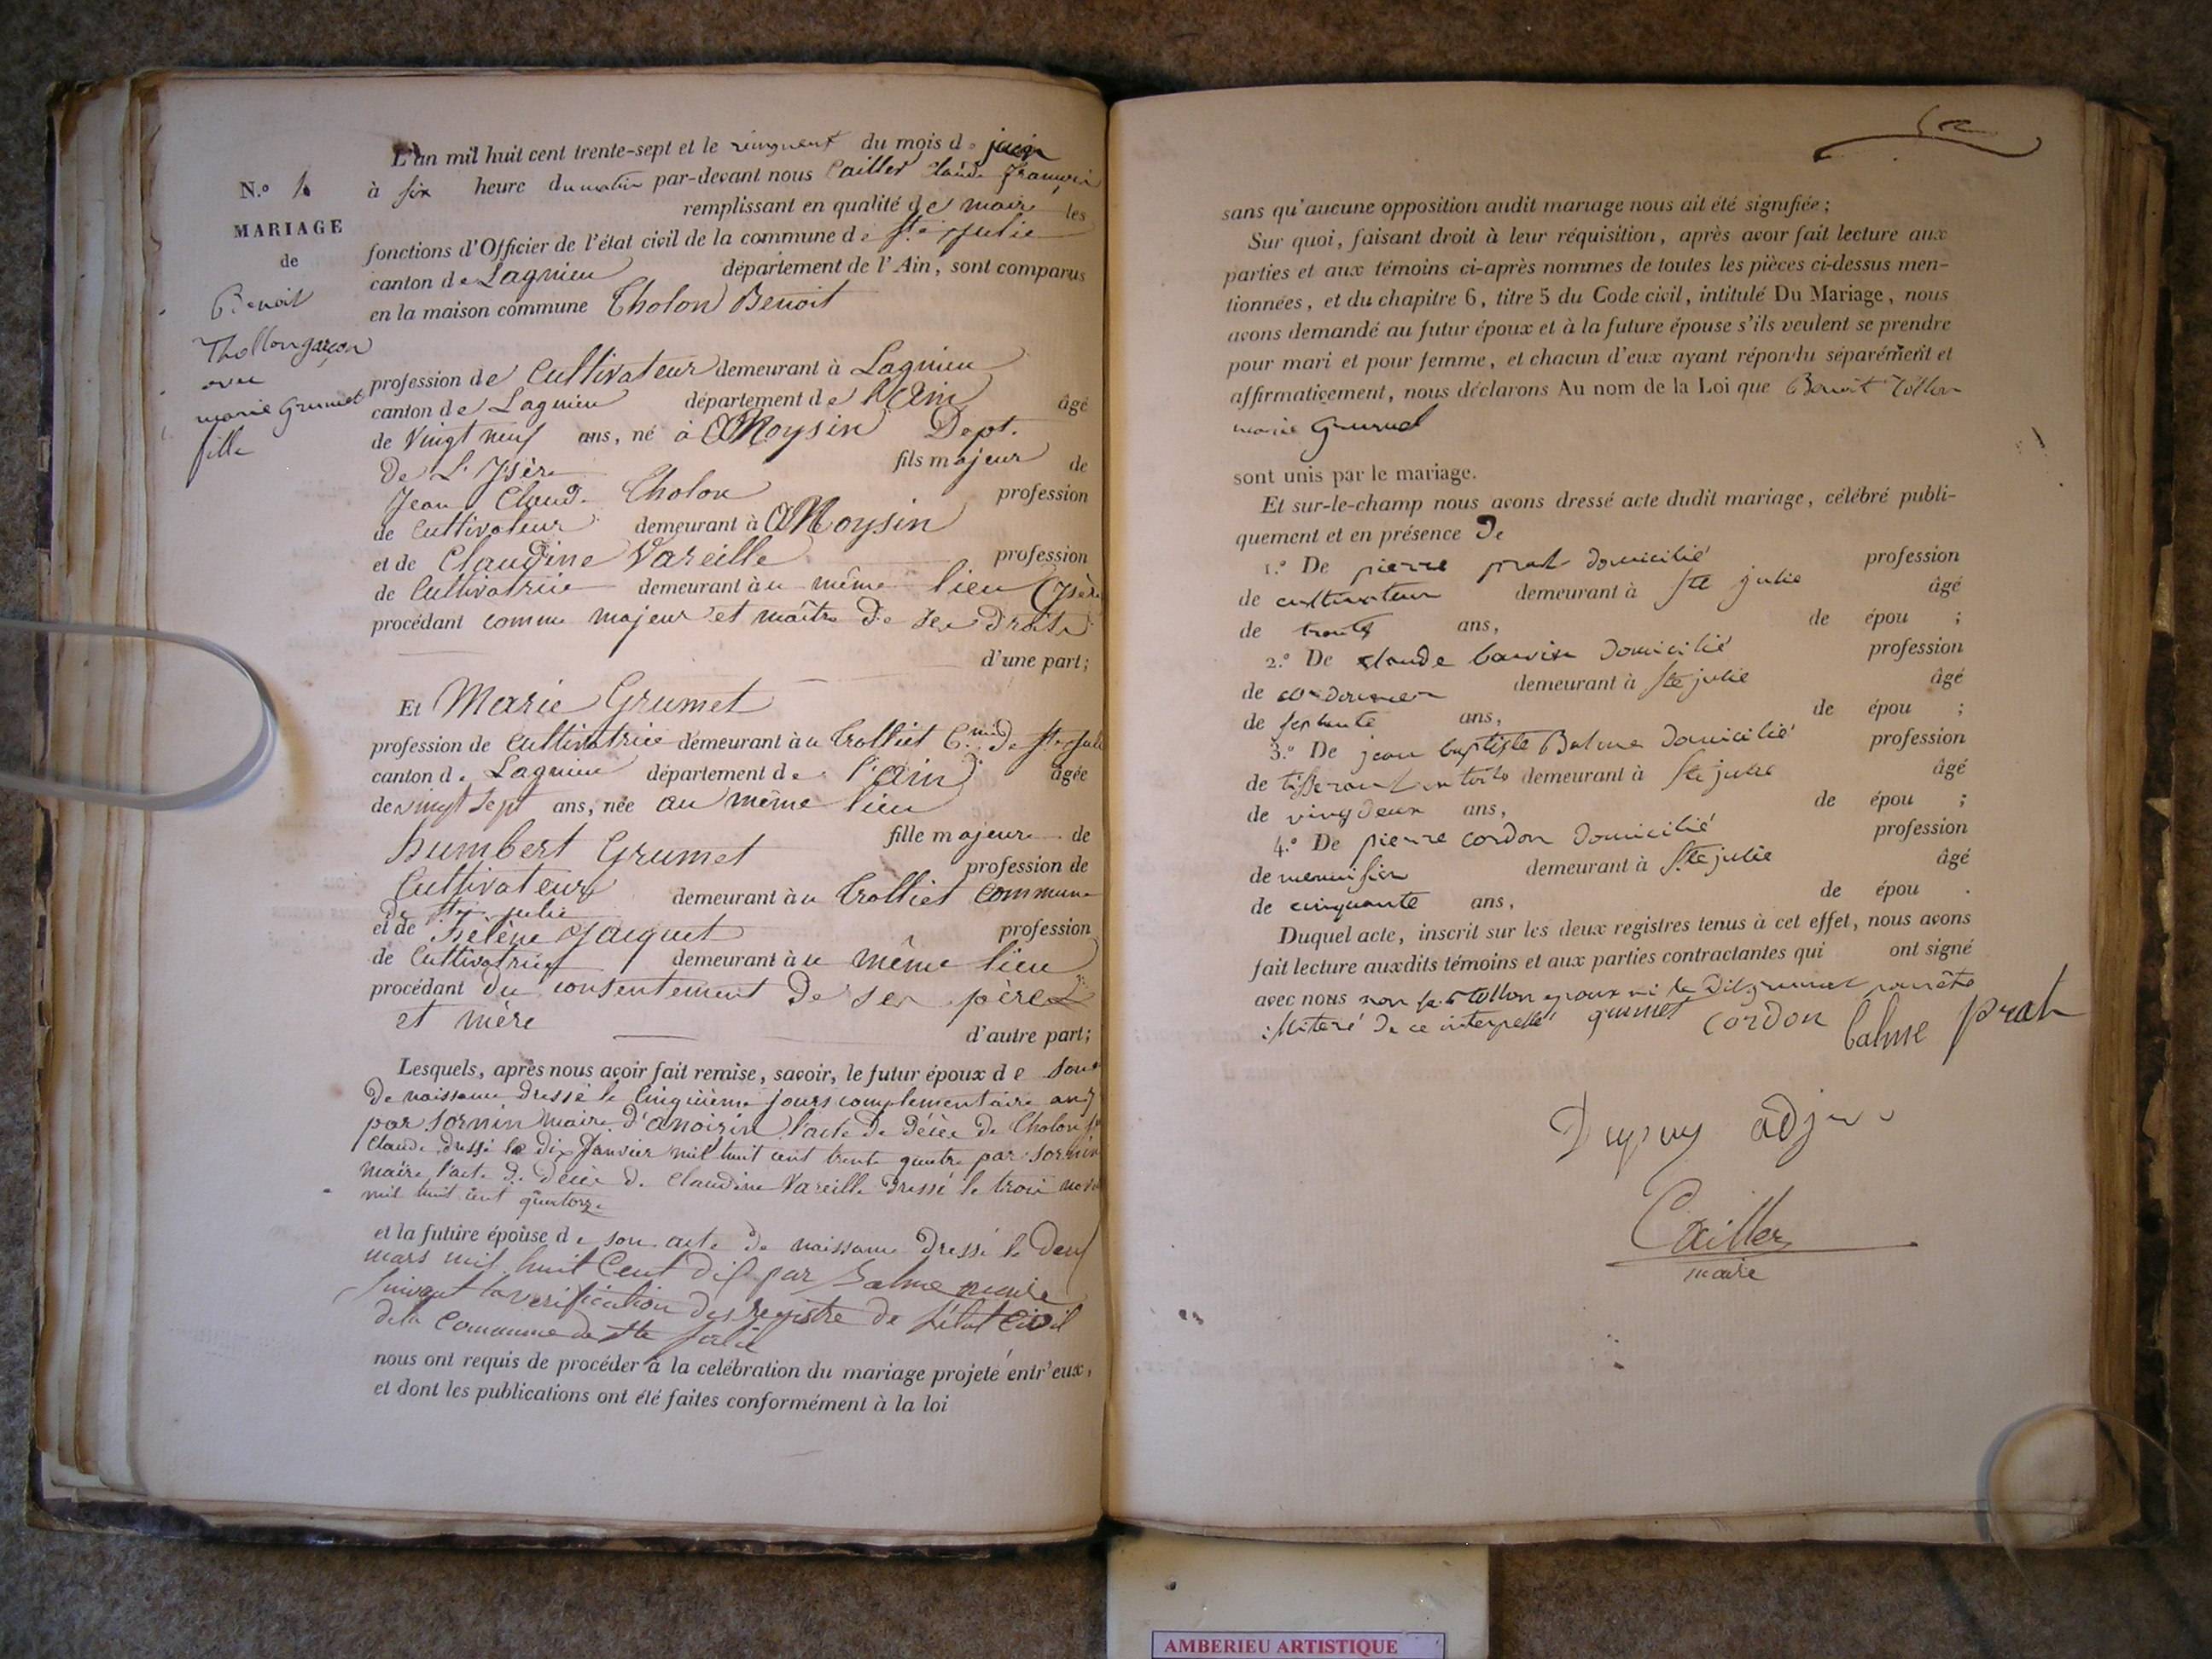 N.o 1
MARIAGE
de
Benoit
Thollon garçon
avec
marie Grumet
fille
L'an mil huit cent trente-sept et le du mois de juin
à six heure du matin par-devant nous Cailler Claude françois
remplissant en qualité de maire les
fonctions d'Officier de l'état civil de la commune de Ste julie
canton de Lagnieu département de l'Ain, sont comparus
en la maison commune Tholon Benoit
profession de Cultivateur demeurant à Lagnieu
canton de Lagnieu département de l'Ain âgé
de Vingt neuf ans, né à Amoysin Dept.
De L'Isère fils majeur de
Jean Claude Tholon profession
de Cultivateur demeurant à Amoysin
et de Claudine Vareille profession
de Cultivatrice demeurant au même lieu (Isère
procédant comme majeur et maître de ses droits
d'une part;
Et Marie Grumet
profession de Cultivatrice demeurant au Trolliet Cne de Ste Julie
canton de Lagnieu département de l'Ain âgée
de vingt sept ans, née au même lieu
fille majeure de
humbert Grumet profession de
Cultivateur demeurant au Trolliet Commune
de Ste julie
et de hélène Jacquet profession
de Cultivatrice demeurant au même lieu
procédant du consentement de ses père
et mère
d'autre part;
Lesquels, après nous avoir fait remise, savoir, le futur époux de son
De naissance dressé le Cinquième jours complementaire an
par Sornin maire d'amoisin l'acte de décès de Tholon
Claude dressé le dix Janvier mil huit cent trente quatre par Sornin
maire l'acte de décès de Claudine Vareille dressé le trois
mil huit cent quatorze
et la future épouse de son acte de naissance dressé le deux
mars mil huit Cent dix par Balme maire
suivant la verification des registre de l'état Civil
de la Commune de Ste julie
nous ont requis de procéder à la celébration du mariage projeté entr'eux,
et dont les publications ont été faites conformément à la loi
sans qu'aucune opposition audit mariage nous ait été signifiée;
Sur quoi, faisant droit à leur réquisition, après avoir fait lecture aux
parties et aux témoins ci-après nommés de toutes les pièces ci-dessus men-
tionnées, et du chapitre 6, titre 5 du Code civil, intitulé Du Mariage, nous
avons demandé au futur époux et à la future épouse s'ils veulent se prendre
pour mari et pour femme, et chacun d'eux ayant répondu séparément et
affirmativement, nous déclarons Au nom de la Loi que Benoit Tollon
marie Grumet
sont unis par le mariage.
Et sur-le-champ nous avons dressé acte dudit mariage, célébré publi-
quement et en présence De
1.o De pierre prat domicilié profession
de cultivateur demeurant à Ste julie âgé
de trente ans, de épou ;
2.o De claude domicilié profession
de cordonnier demeurant à Ste julie âgé
de septante ans, de épou ;
3.o De jean baptiste Balme domicilié profession
de tisserant en toile demeurant à Ste julie âgé
de vingdeux ans, de épou ;
4.o De pierre cordon domicilié profession
de menuisier demeurant à Ste julie âgé
de cinquante ans, de épou .
Duquel acte, inscrit sur les deux registres tenus à cet effet, nous avons
fait lecture auxdits témoins et aux parties contractantes qui ont signé
avec nous non le tollon epoux ni la dit grumet pour être
illiteré de ce interpellé grumet cordon balme prat
Dupuy adj
Cailler
maire
AMBERIEU ARTISTIQUE